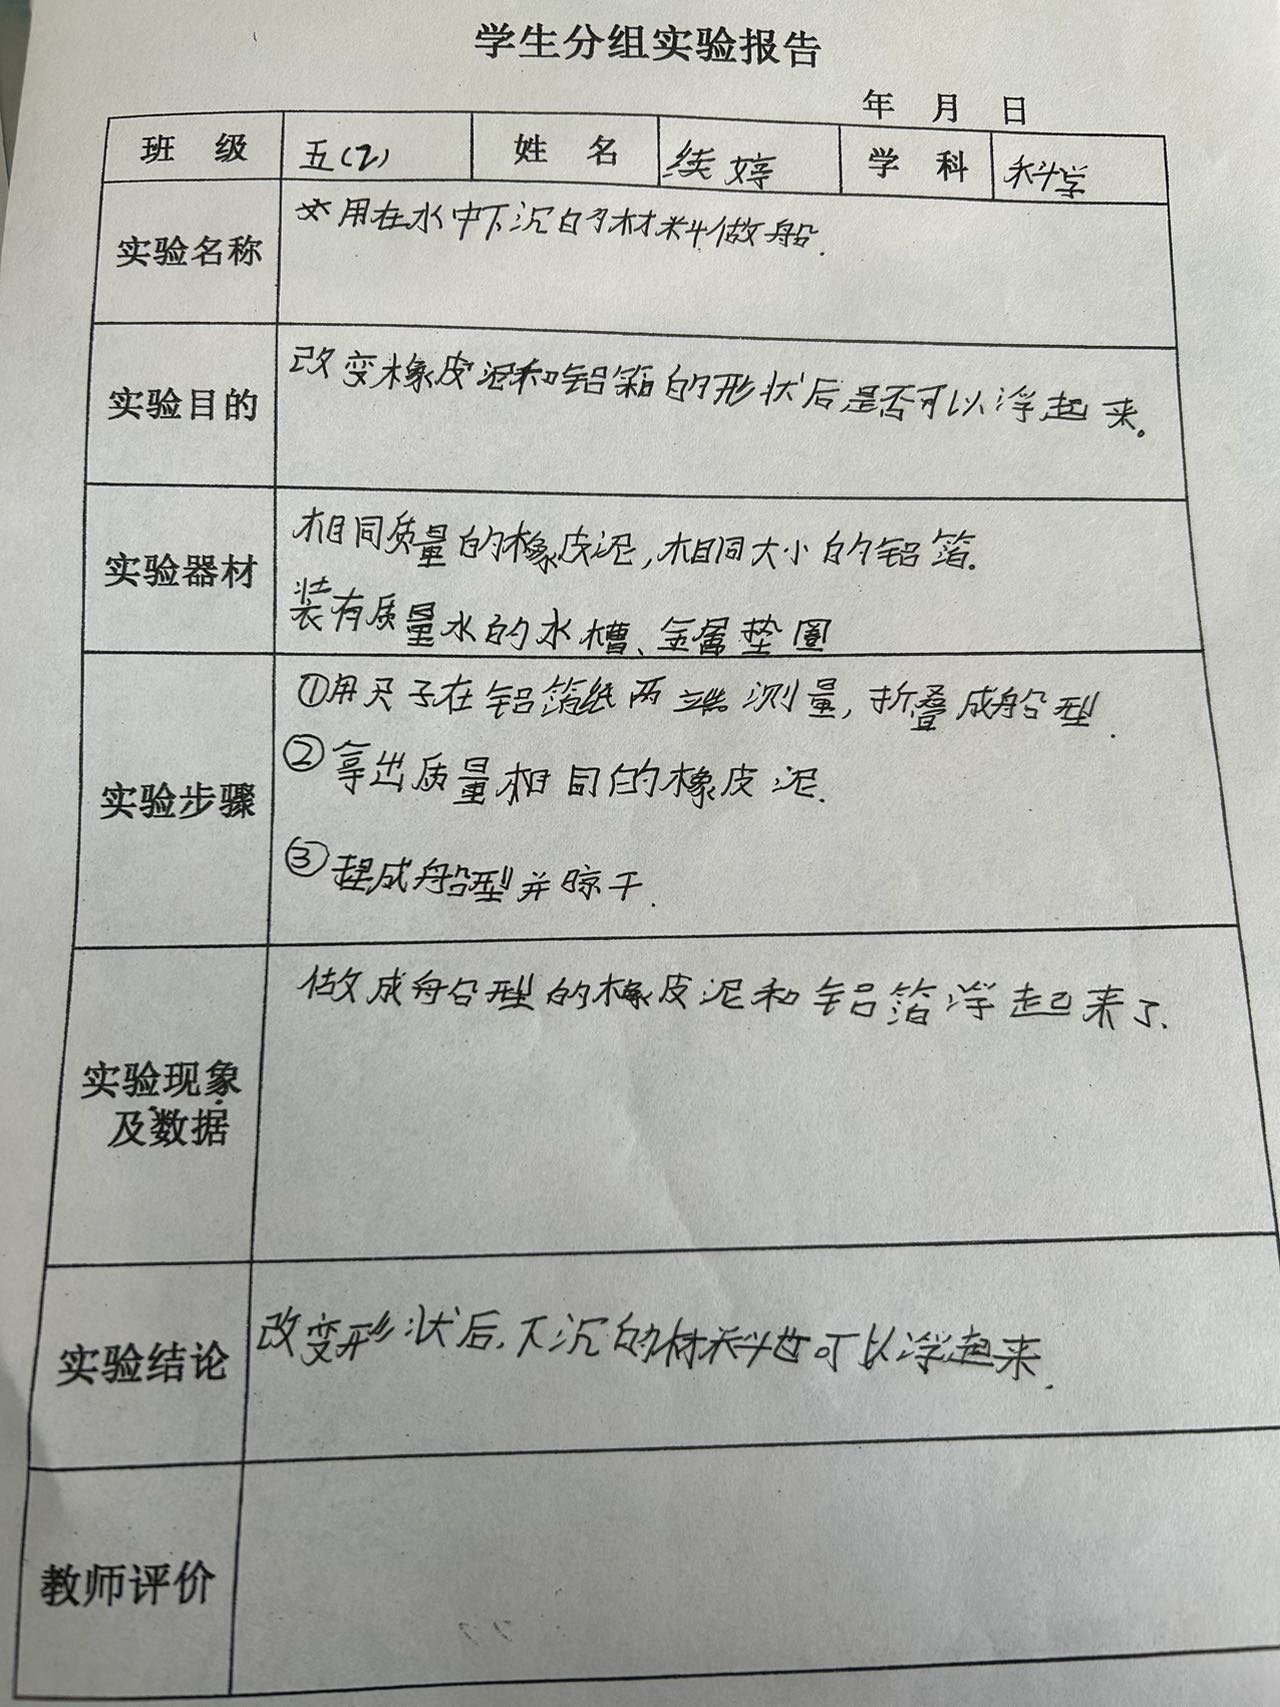 学生分组实验报告
年 月 日
班 级 五(2) 姓 名 续婷 学 科 科学
实验名称 用在水中下沉的材料做船.
实验目的 改变橡皮泥和铝箔的形状后是否可以浮起来。
实验器材 相同质量的橡皮泥,相同大小的铝箔.
装有质量水的水槽、金属垫圈
实验步骤 ①用尺子在铝箔纸两端测量,折叠成船型.
②拿出质量相同的橡皮泥.
③捏成船型并晾干.
实验现象 做成船型的橡皮泥和铝箔浮起来了.
及数据
实验结论 改变形状后,下沉的材料也可以浮起来.
教师评价